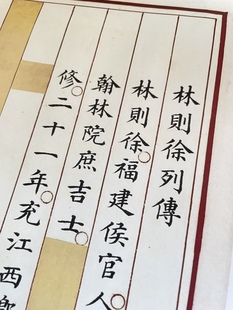 林則徐列傳
林則徐。福建侯官人。
翰林院庶吉士。
修。二十一年。充江西鄉